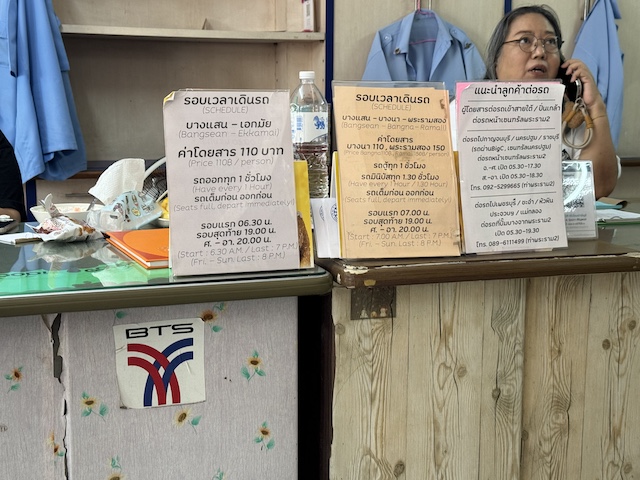 รอบเวลาเดินรถ
(SCHEDULE)
บางแสน - เอกมัย
(Bangsean - Ekkamai)
ค่าโดยสาร 110 บาท
(Price 110B / person)
รถออกทุก 1 ชั่วโมง
(Have every 1 Hour)
รถเต็มก่อน ออกก่อน
(Seats full, depart immediately)
รอบแรก 06.30 น.
รอบสุดท้าย 19.00 น.
ศ. - อา. 20.00 น.
(Start : 6.30 A.M / Last : 7 P.M)
(Fri. - Sun: Last : 8 P.M)
รอบเวลาเดินรถ
(SCHEDULE)
บางแสน - บางนา - พระรามสอง
(Bangsean - Bangna - Rama2)
ค่าโดยสาร
บางนา 110 , พระรามสอง 150
รถตู้ทุก 1 ชั่วโมง
รถมินิบัส ทุก 1.30 ชั่วโมง
(Have every 1 Hour / 1.30 Hour)
รถเต็มก่อน ออกก่อน
(Seats full, depart immediately)
รอบแรก 07.00 น.
รอบสุดท้าย 19.00 น.
ศ. - อา. 20.00 น.
(Start : 7.00 A.M / Last : 7 P.M)
(Fri. - Sun: Last : 8 P.M)
แนะนำลูกค้าต่อรถ
ผู้โดยสารต่อรถเข้าสายใต้ / ปิ่นเกล้า
ต่อรถหน้าเซนทรัลพระราม2
ต่อรถไปกาญจนบุรี / นครปฐม / ราชบุรี
(รถผ่านบิ๊กC, เซนทรัลนครปฐม)
ต่อรถหน้าเซนทรัลพระราม2
จ.-ศ. เปิด 05.30-17.30
ส.-อา. เปิด 05.30-18.30
โทร. 092-5299665 (ท่าพระราม2)
ต่อรถไปเพชรบุรี / ชะอำ / หัวหิน
ประจวบฯ / แม่กลอง
ต่อรถที่ปั๊มบางจากพระราม2
เปิด 05.30-19.30
โทร. 089-6111499 (ท่าพระราม2)
BTS